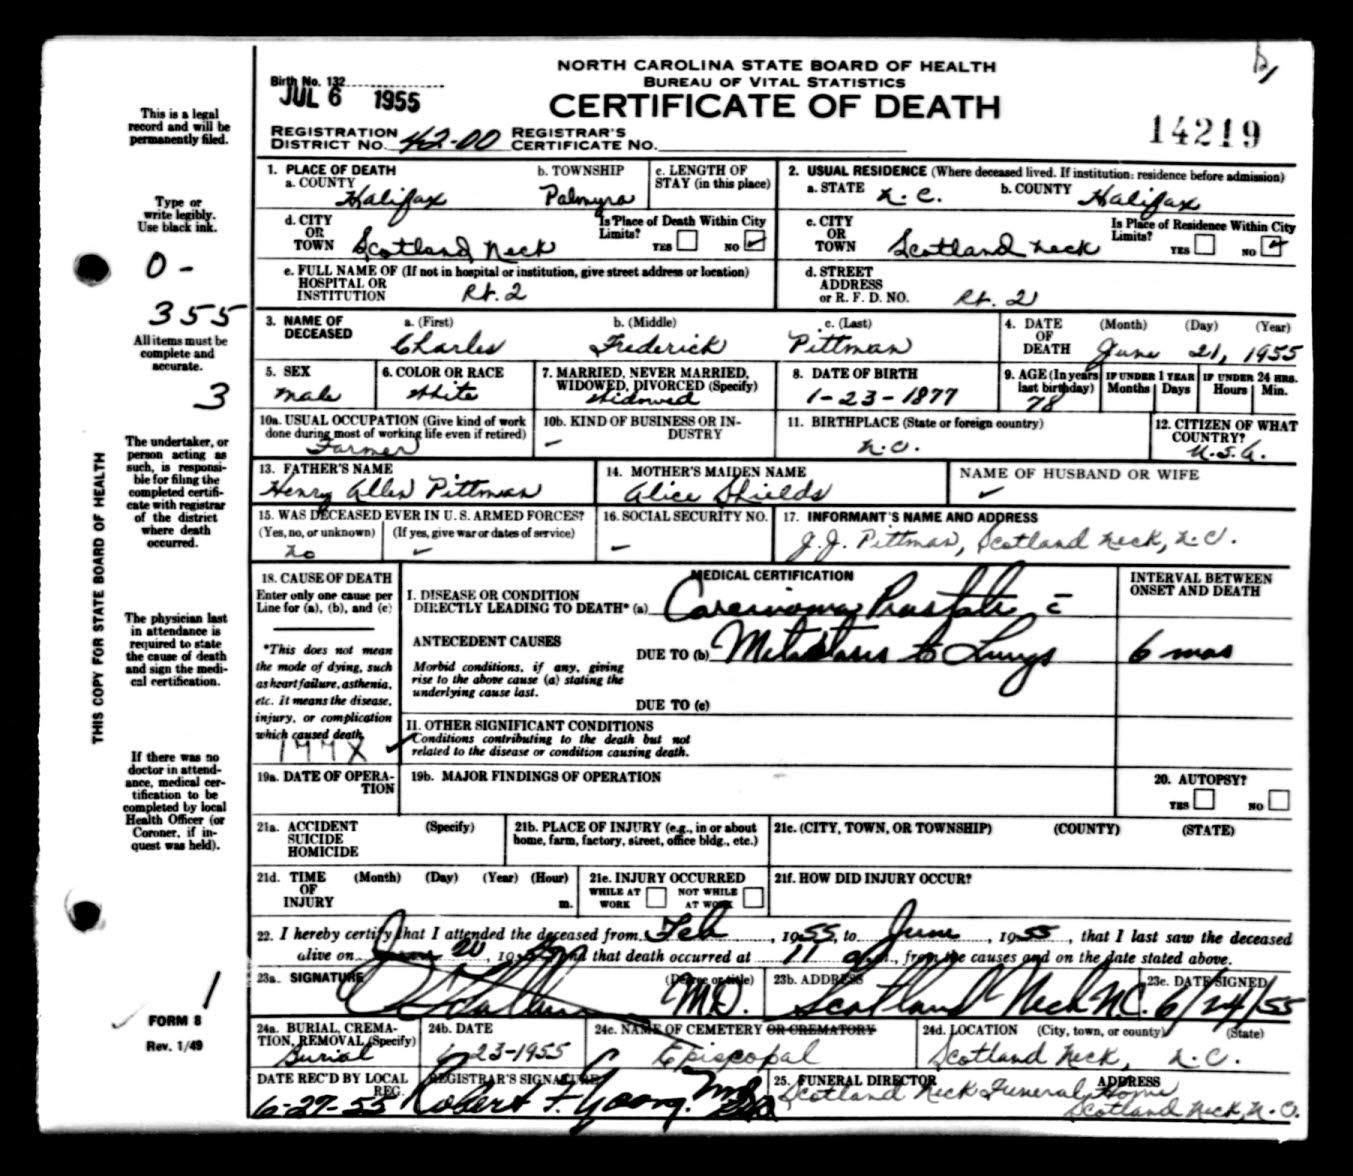 NORTH CAROLINA STATE BOARD OF HEALTH
BUREAU OF VITAL STATISTICS
CERTIFICATE OF DEATH
Birth No. 132
JUL 6 1955
14219
REGISTRATION DISTRICT NO. 42-00 REGISTRAR'S CERTIFICATE NO.
This is a legal record and will be permanently filed.
Type or write legibly. Use black ink.
0 -
355
All items must be complete and accurate.
3
The undertaker, or person acting as such, is responsible for filing the completed certificate with registrar of the district where death occurred.
The physician last in attendance is required to state the cause of death and sign the medical certification.
If there was no doctor in attendance, medical certification to be completed by local Health Officer (or Coroner, if inquest was held).
1
FORM 8
Rev. 1/49
THIS COPY FOR STATE BOARD OF HEALTH
1. PLACE OF DEATH
a. COUNTY Halifax
b. TOWNSHIP Palmyra
c. LENGTH OF STAY (in this place)
2. USUAL RESIDENCE (Where deceased lived. If institution: residence before admission)
a. STATE N. C. b. COUNTY Halifax
d. CITY OR TOWN Scotland Neck
Is Place of Death Within City Limits? YES NO ✓
c. CITY OR TOWN Scotland Neck
Is Place of Residence Within City Limits? YES NO
e. FULL NAME OF (If not in hospital or institution, give street address or location) HOSPITAL OR INSTITUTION Rt. 2
d. STREET ADDRESS or R. F. D. NO. Rt. 2
3. NAME OF DECEASED
a. (First) Charles
b. (Middle) Frederick
c. (Last) Pittman
4. DATE OF DEATH (Month) (Day) (Year) June 21, 1955
5. SEX Male
6. COLOR OR RACE White
7. MARRIED, NEVER MARRIED, WIDOWED, DIVORCED (Specify) Widowed
8. DATE OF BIRTH 1-23-1877
9. AGE (In years last birthday) 78
IF UNDER 1 YEAR Months Days
IF UNDER 24 HRS. Hours Min.
10a. USUAL OCCUPATION (Give kind of work done during most of working life even if retired) Farmer
10b. KIND OF BUSINESS OR INDUSTRY –
11. BIRTHPLACE (State or foreign country) N.C.
12. CITIZEN OF WHAT COUNTRY? U.S.A.
13. FATHER'S NAME Henry Allen Pittman
14. MOTHER'S MAIDEN NAME Alice Shields
NAME OF HUSBAND OR WIFE
15. WAS DECEASED EVER IN U. S. ARMED FORCES?
(Yes, no, or unknown) no
(If yes, give war or dates of service)
16. SOCIAL SECURITY NO. –
17. INFORMANT'S NAME AND ADDRESS J.J. Pittman, Scotland Neck, N.C.
18. CAUSE OF DEATH
Enter only one cause per Line for (a), (b), and (c)
*This does not mean the mode of dying, such as heart failure, asthenia, etc. It means the disease, injury, or complication which caused death.
177X
MEDICAL CERTIFICATION
INTERVAL BETWEEN ONSET AND DEATH
I. DISEASE OR CONDITION DIRECTLY LEADING TO DEATH* (a) Carcinoma Prostate c̄
ANTECEDENT CAUSES
DUE TO (b) Metastasis to Lungs 6 mos
Morbid conditions, if any, giving rise to the above cause (a) stating the underlying cause last.
DUE TO (c)
II. OTHER SIGNIFICANT CONDITIONS
Conditions contributing to the death but not related to the disease or condition causing death.
19a. DATE OF OPERATION
19b. MAJOR FINDINGS OF OPERATION
20. AUTOPSY? YES NO
21a. ACCIDENT SUICIDE HOMICIDE (Specify)
21b. PLACE OF INJURY (e.g., in or about home, farm, factory, street, office bldg., etc.)
21c. (CITY, TOWN, OR TOWNSHIP) (COUNTY) (STATE)
21d. TIME OF INJURY (Month) (Day) (Year) (Hour) m.
21e. INJURY OCCURRED WHILE AT WORK NOT WHILE AT WORK
21f. HOW DID INJURY OCCUR?
22. I hereby certify that I attended the deceased from Feb, 1955, to June, 1955, that I last saw the deceased
alive on June 20, 19 and that death occurred at 11 m., from the causes and on the date stated above.
23a. SIGNATURE (Degree or title) M.D.
23b. ADDRESS Scotland Neck N.C.
23c. DATE SIGNED 6/24/55
24a. BURIAL, CREMATION, REMOVAL (Specify) Burial
24b. DATE 6 23-1955
24c. NAME OF CEMETERY OR CREMATORY Episcopal
24d. LOCATION (City, town, or county) (State) Scotland Neck, N.C.
DATE REC'D BY LOCAL REG. 6-27-55
REGISTRAR'S SIGNATURE Robert F. Young. MD
25. FUNERAL DIRECTOR ADDRESS
Scotland Neck Funeral Home
Scotland Neck, N.C.